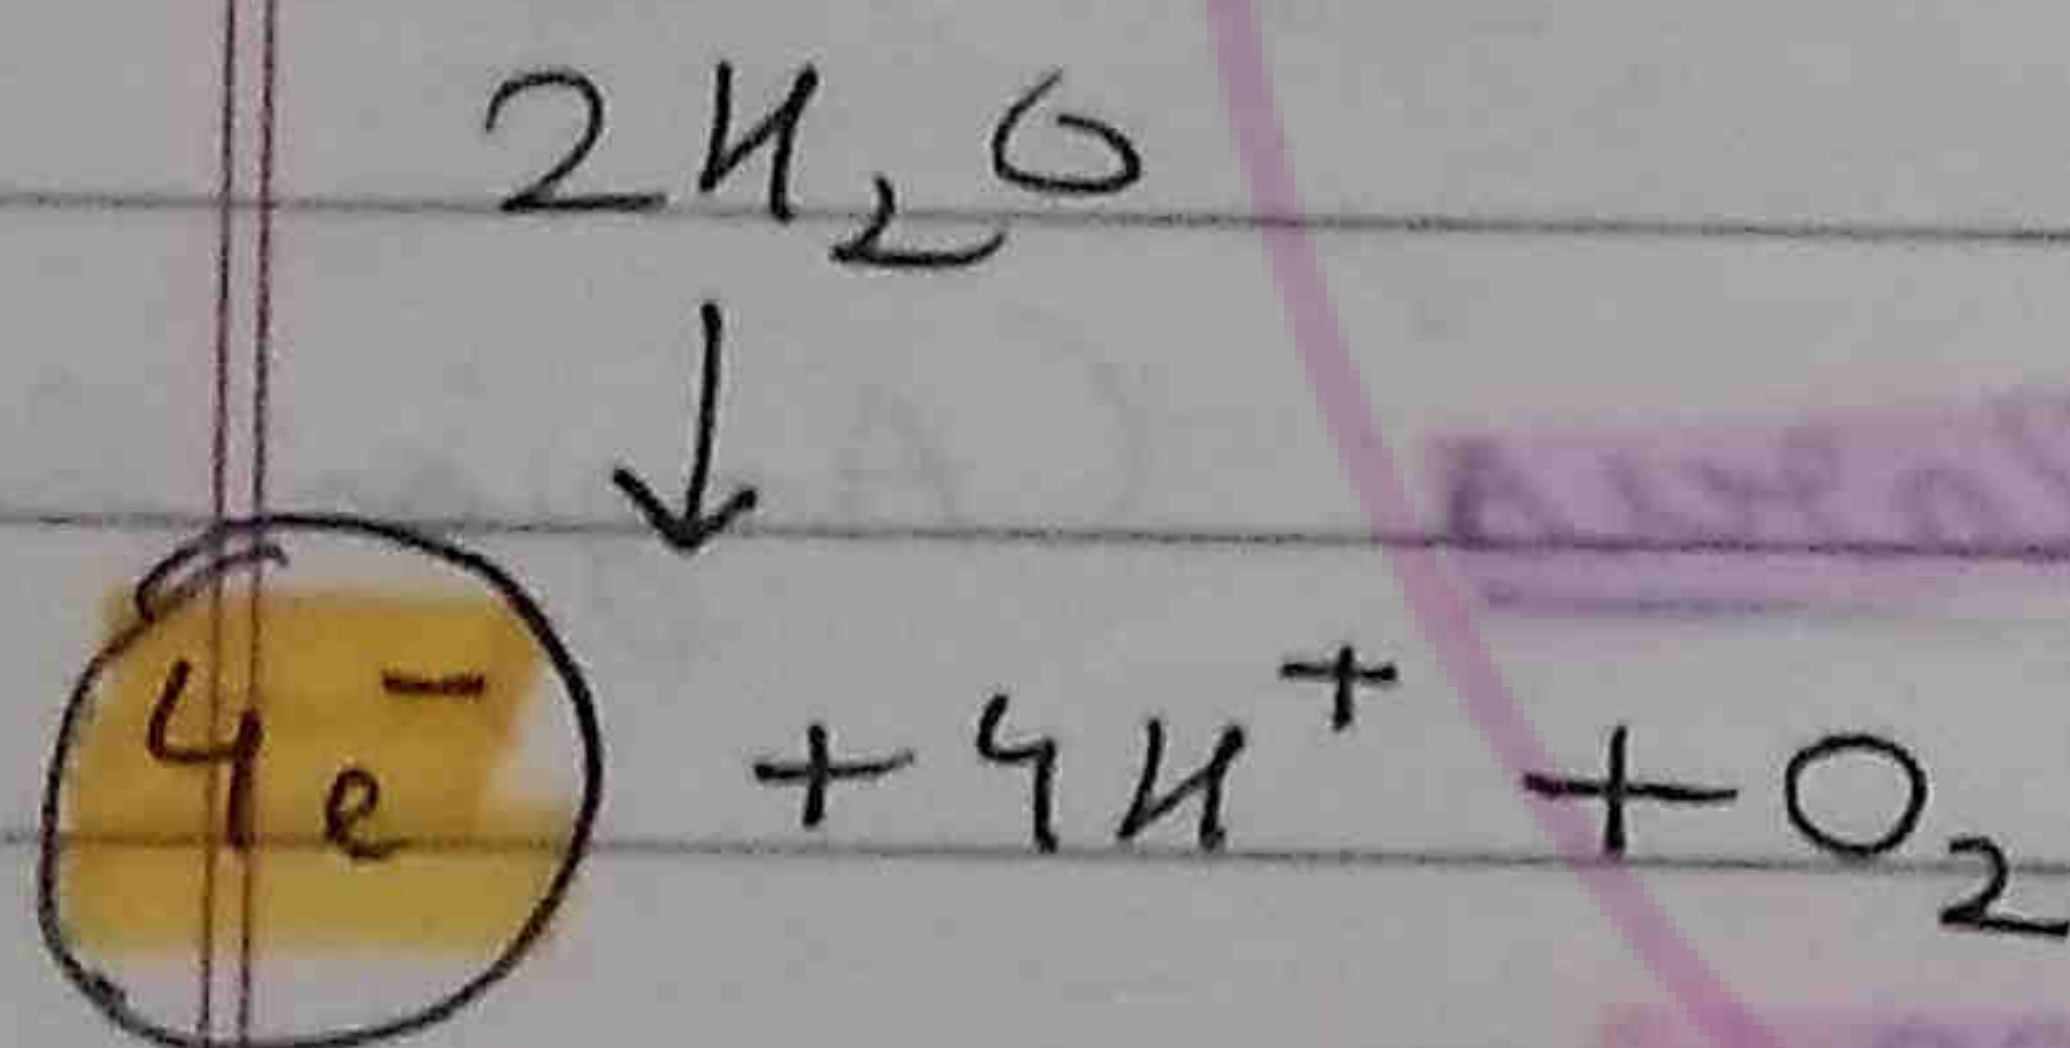 2H₂O
↓
4e⁻ + 4H⁺ + O₂